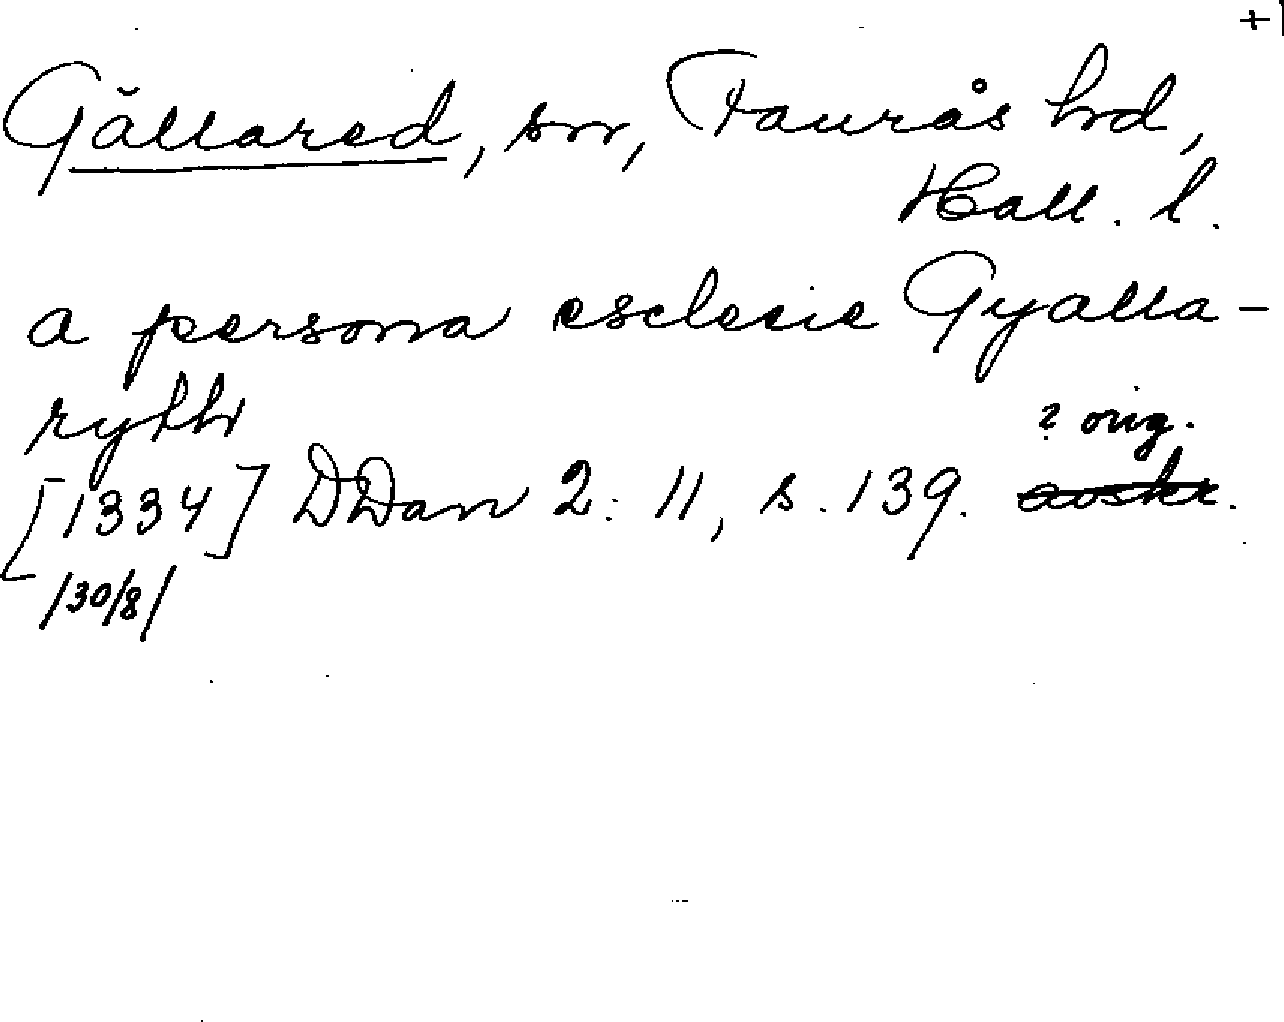 +1
Gällared, sn, Faurås hd,
Hall. l.
a persona esclesie Gyalla-
rythh
? orig.
[1334] DDan 2: 11, s. 139. avskr.
/30/8/